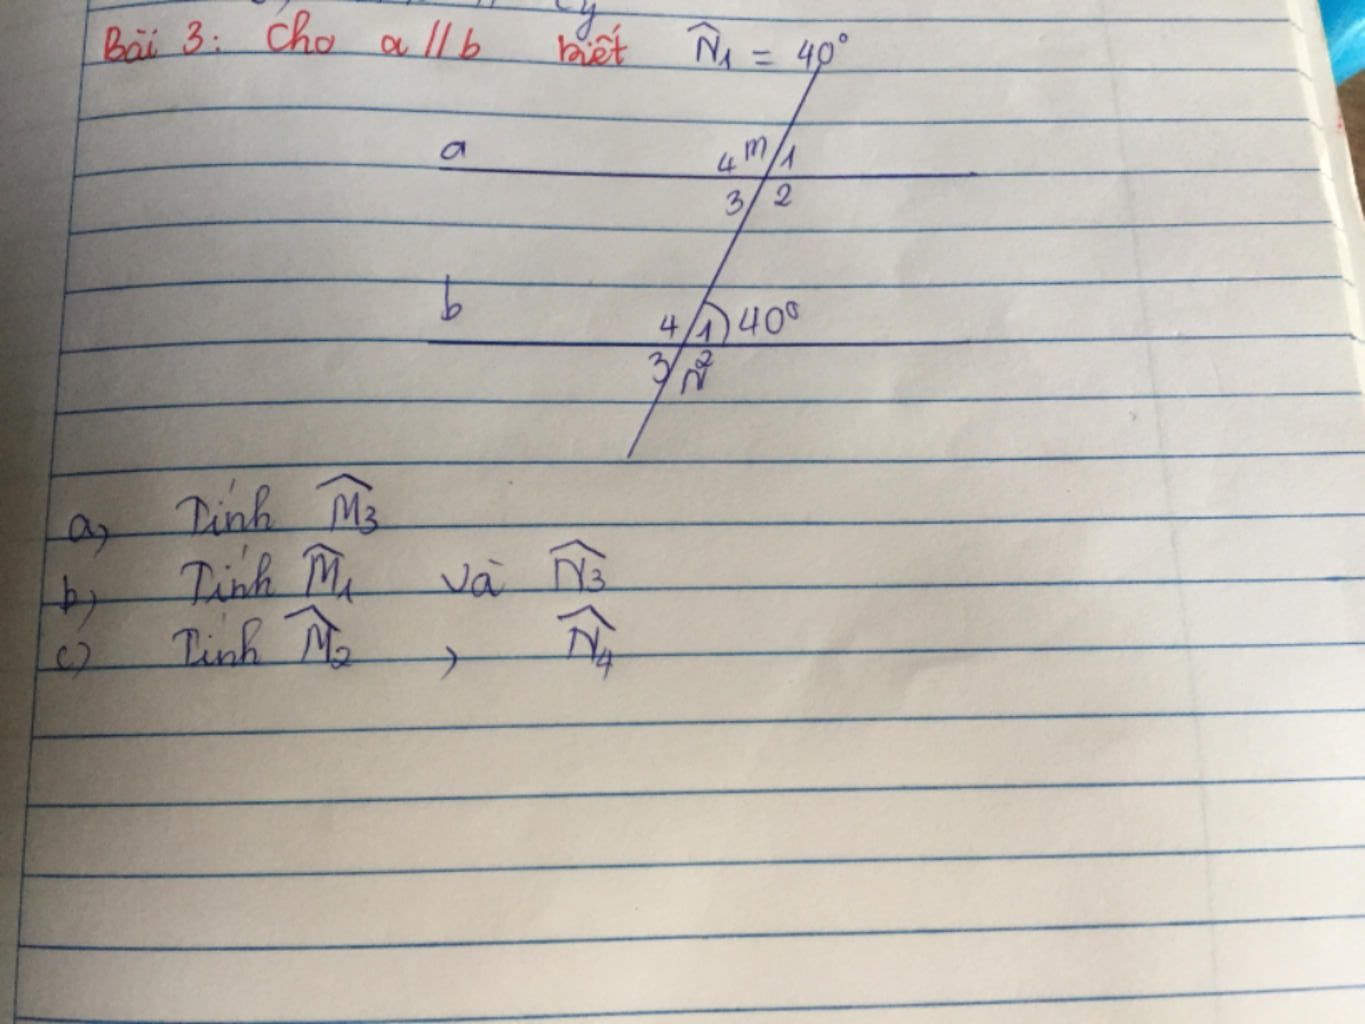 Bài 3: Cho a // b biết N̂1 = 40°
a
4 m 1
3 2
b
4 1 40°
3 2
N
a, Tính M̂3
b) Tính M̂1 và N̂3
c) Tính M̂2 , N̂4